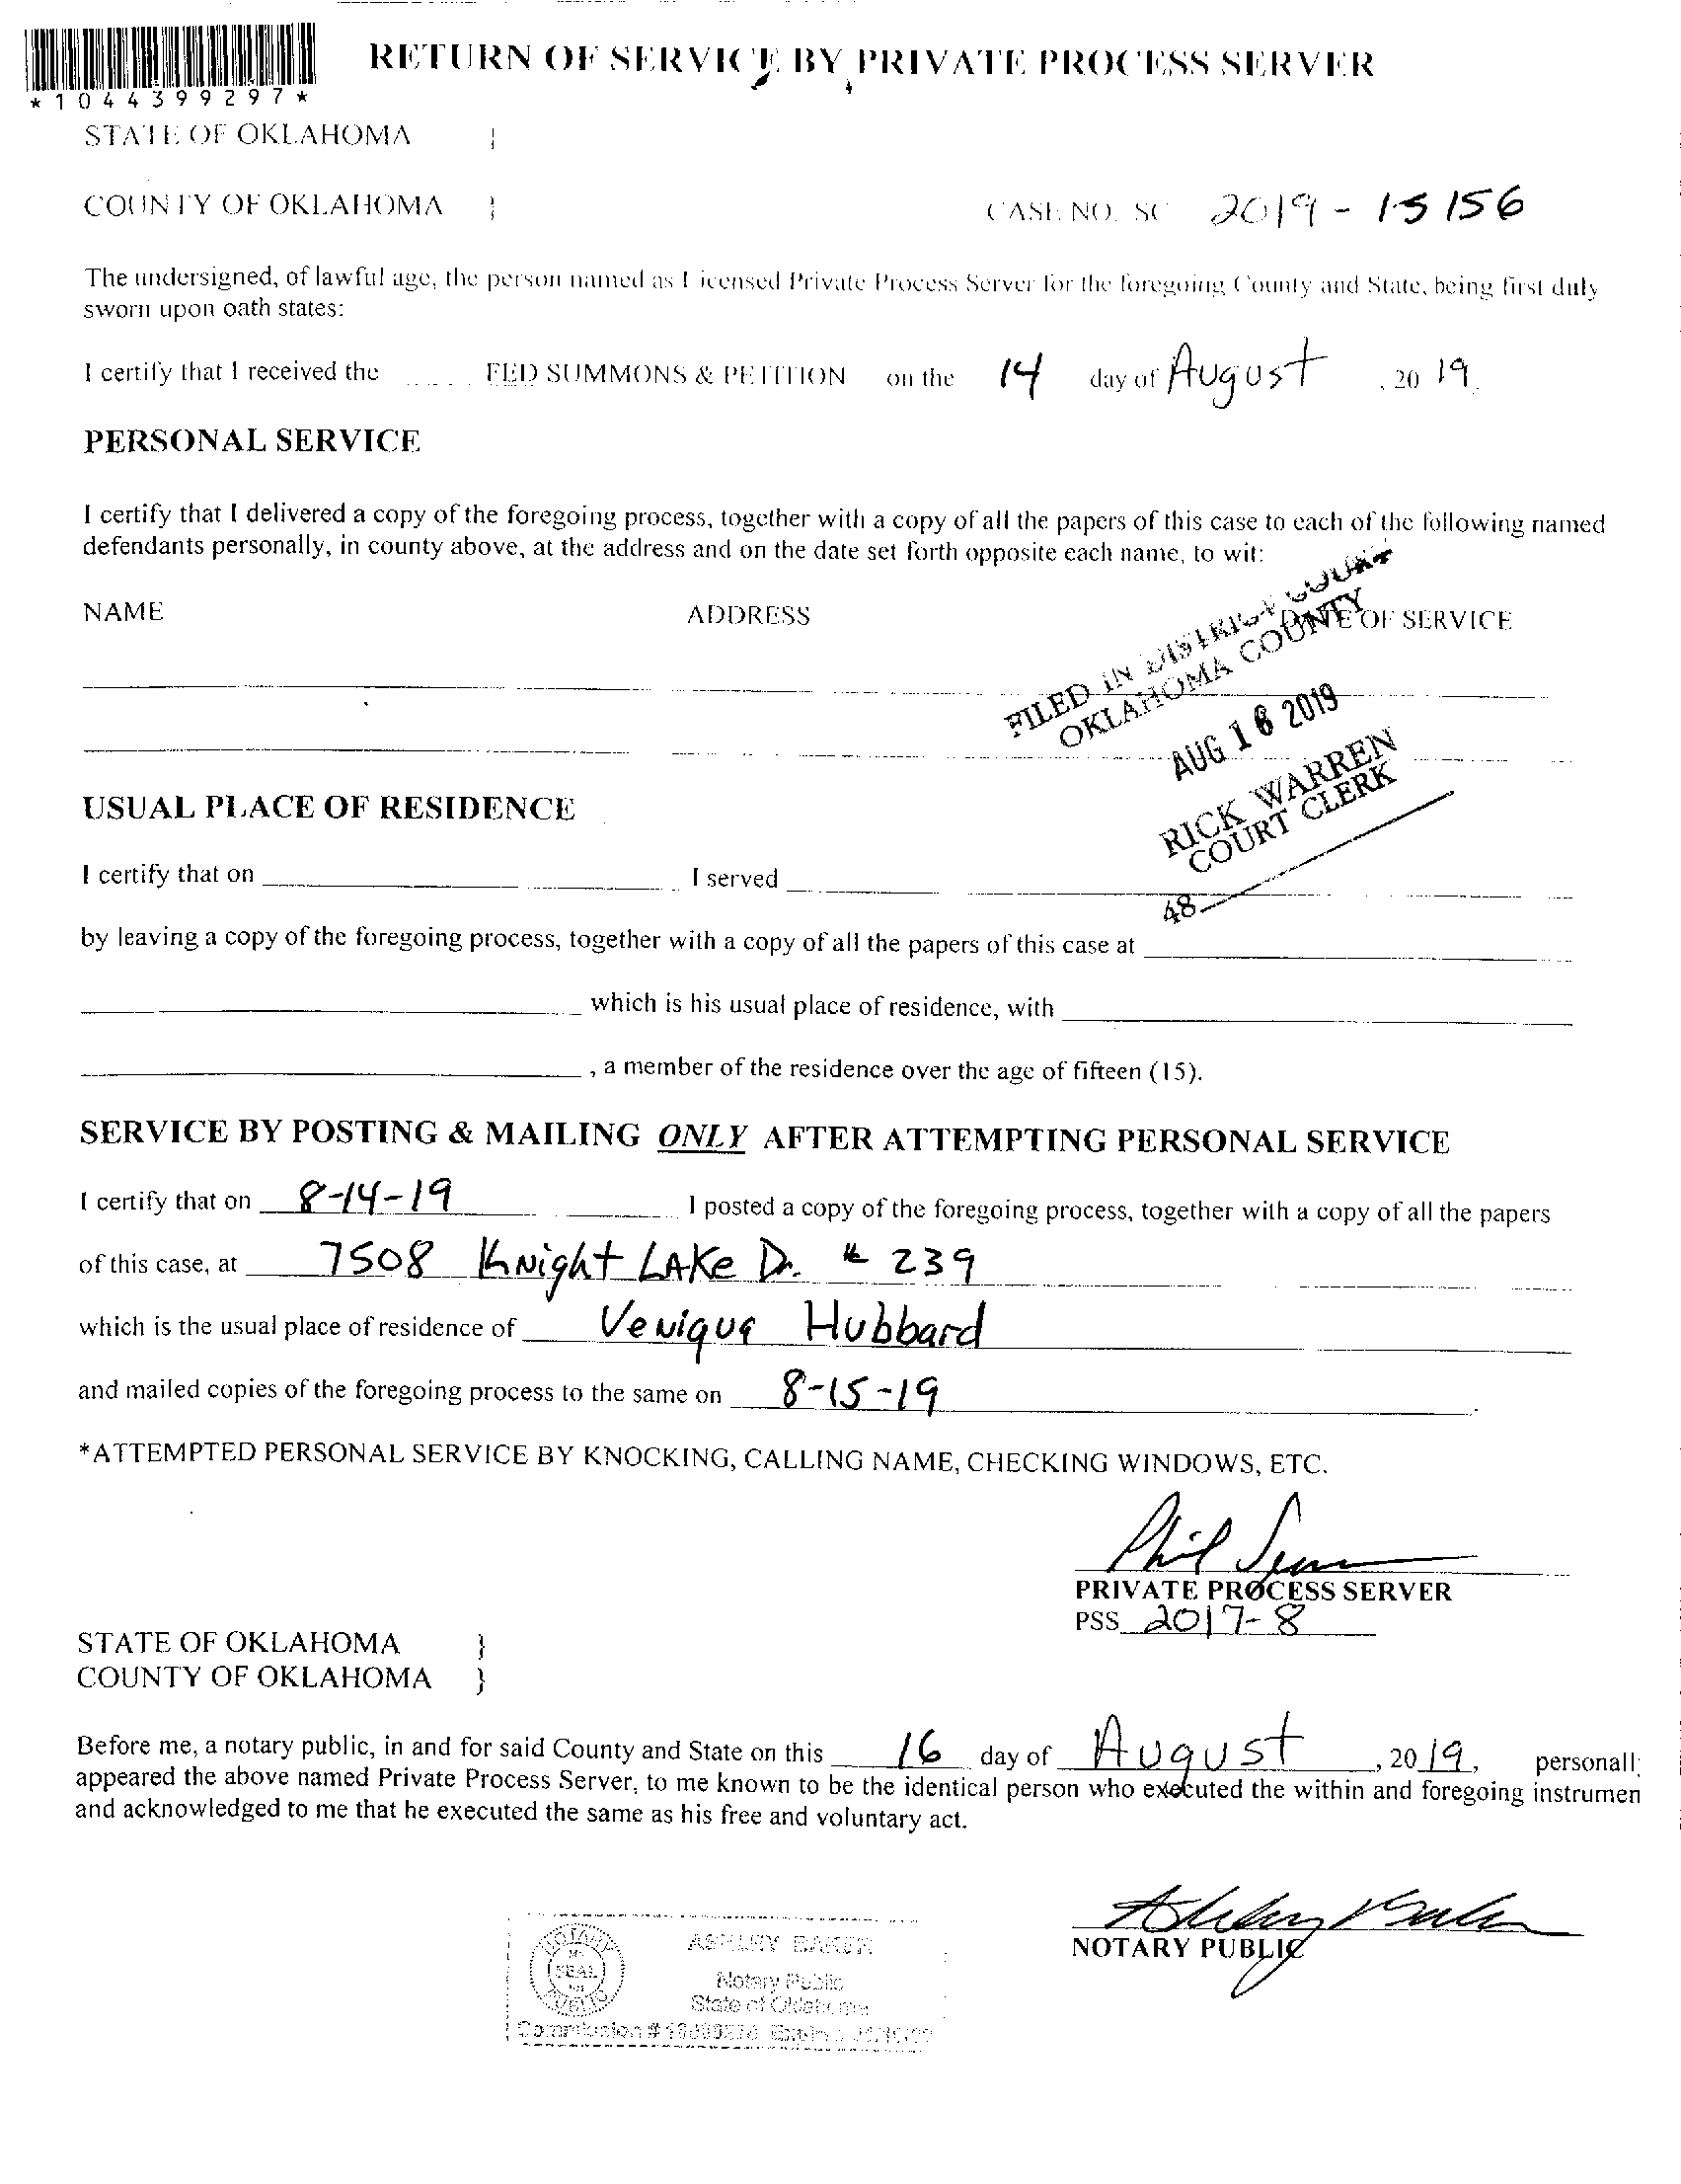 RETURN OF SERVICE BY PRIVATE PROCESS SERVER
*1044399297*
STATE OF OKLAHOMA }
COUNTY OF OKLAHOMA } CASE NO. SC 2019 - 15156
The undersigned, of lawful age, the person named as Licensed Private Process Server for the foregoing County and State, being first duly
sworn upon oath states:
I certify that I received the FED SUMMONS & PETITION on the 14 day of August , 20 19.
PERSONAL SERVICE
I certify that I delivered a copy of the foregoing process, together with a copy of all the papers of this case to each of the following named
defendants personally, in county above, at the address and on the date set forth opposite each name, to wit:
NAME ADDRESS DATE OF SERVICE
FILED IN DISTRICT COURT
OKLAHOMA COUNTY
AUG 16 2019
RICK WARREN
COURT CLERK
48
USUAL PLACE OF RESIDENCE
I certify that on I served
by leaving a copy of the foregoing process, together with a copy of all the papers of this case at
which is his usual place of residence, with
, a member of the residence over the age of fifteen (15).
SERVICE BY POSTING & MAILING ONLY AFTER ATTEMPTING PERSONAL SERVICE
I certify that on 8-14-19 I posted a copy of the foregoing process, together with a copy of all the papers
of this case, at 7508 Knight LAKe Dr. # 239
which is the usual place of residence of Veniqua Hubbard
and mailed copies of the foregoing process to the same on 8-15-19
*ATTEMPTED PERSONAL SERVICE BY KNOCKING, CALLING NAME, CHECKING WINDOWS, ETC.
Phil
PRIVATE PROCESS SERVER
PSS 2017-8
STATE OF OKLAHOMA }
COUNTY OF OKLAHOMA }
Before me, a notary public, in and for said County and State on this 16 day of August , 20 19, personall
appeared the above named Private Process Server, to me known to be the identical person who executed the within and foregoing instrumen
and acknowledged to me that he executed the same as his free and voluntary act.
Ashley Baker
NOTARY PUBLIC
NOTARY
SEAL
PUBLIC
ASHLEY BAKER
Notary Public
State of Oklahoma
Commission #